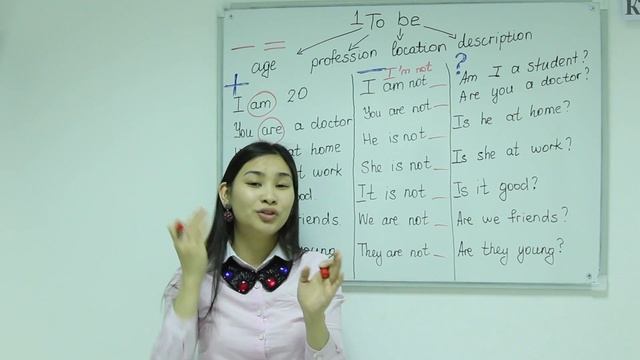 1 To be
age profession location description
+
I am 20
You are a doctor
at home
at work
friends
young
—
I'm not
I am not _
You are not _
He is not _
She is not _
It is not _
We are not _
They are not _
?
Am I a student?
Are you a doctor?
Is he at home?
Is she at work?
Is it good?
Are we friends?
Are they young?
K